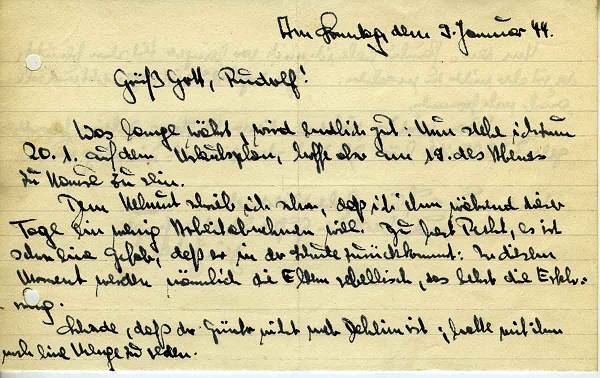 Am Sonntag, dem 9. Januar 44.
Grüß Gott, Rudolf!
Was lange währt, wird endlich gut: Nun stehe ich zum
20. 1. auf dem Urlaubsplan, hoffe also am 19. des Abends
zu Hause zu sein.
Dem Helmut schrieb ich schon, daß ich ihm während dieser
Tage ein wenig Arbeit abnehmen will. Du hast Recht, es ist
schon eine Gefahr, daß er in der Schule zurückkommt: In diesem
Moment werden nämlich die Eltern rebellisch, das lehrt die Erfah-
rung.
Schade, daß der Günter nicht mehr daheim ist; hätte mit ihm
noch eine Menge zu reden.